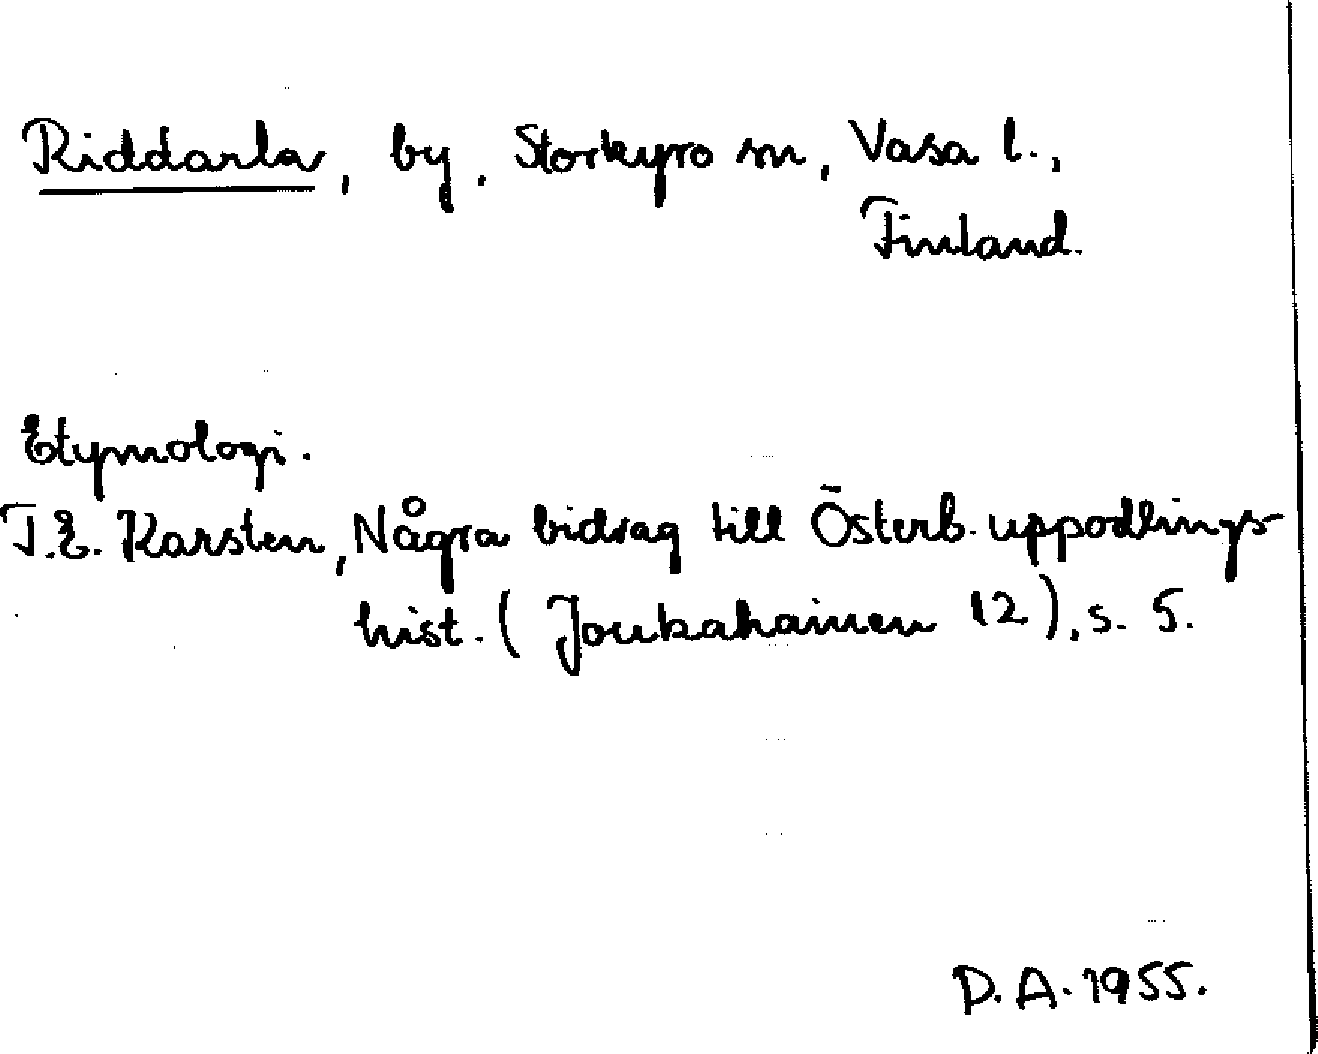 Riddarla, by, Storkyro sn, Vasa l.,
Finland.
Etymologi.
T.E. Karsten, Några bidrag till Österb. uppodlings-
hist. (Joukahainen 12), s. 5.
D.A. 1955.